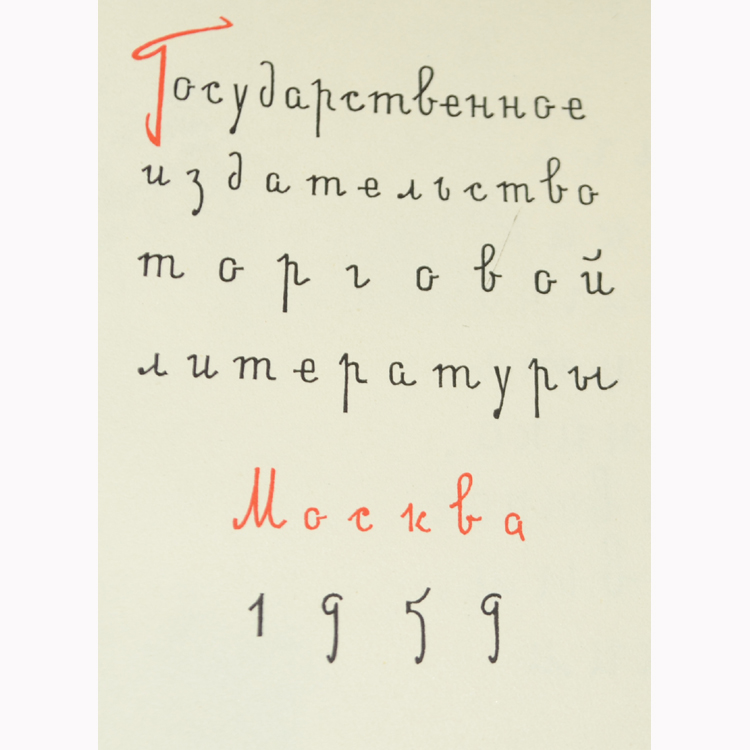 Государственное
издательство
торговой
литературы
Москва
1959